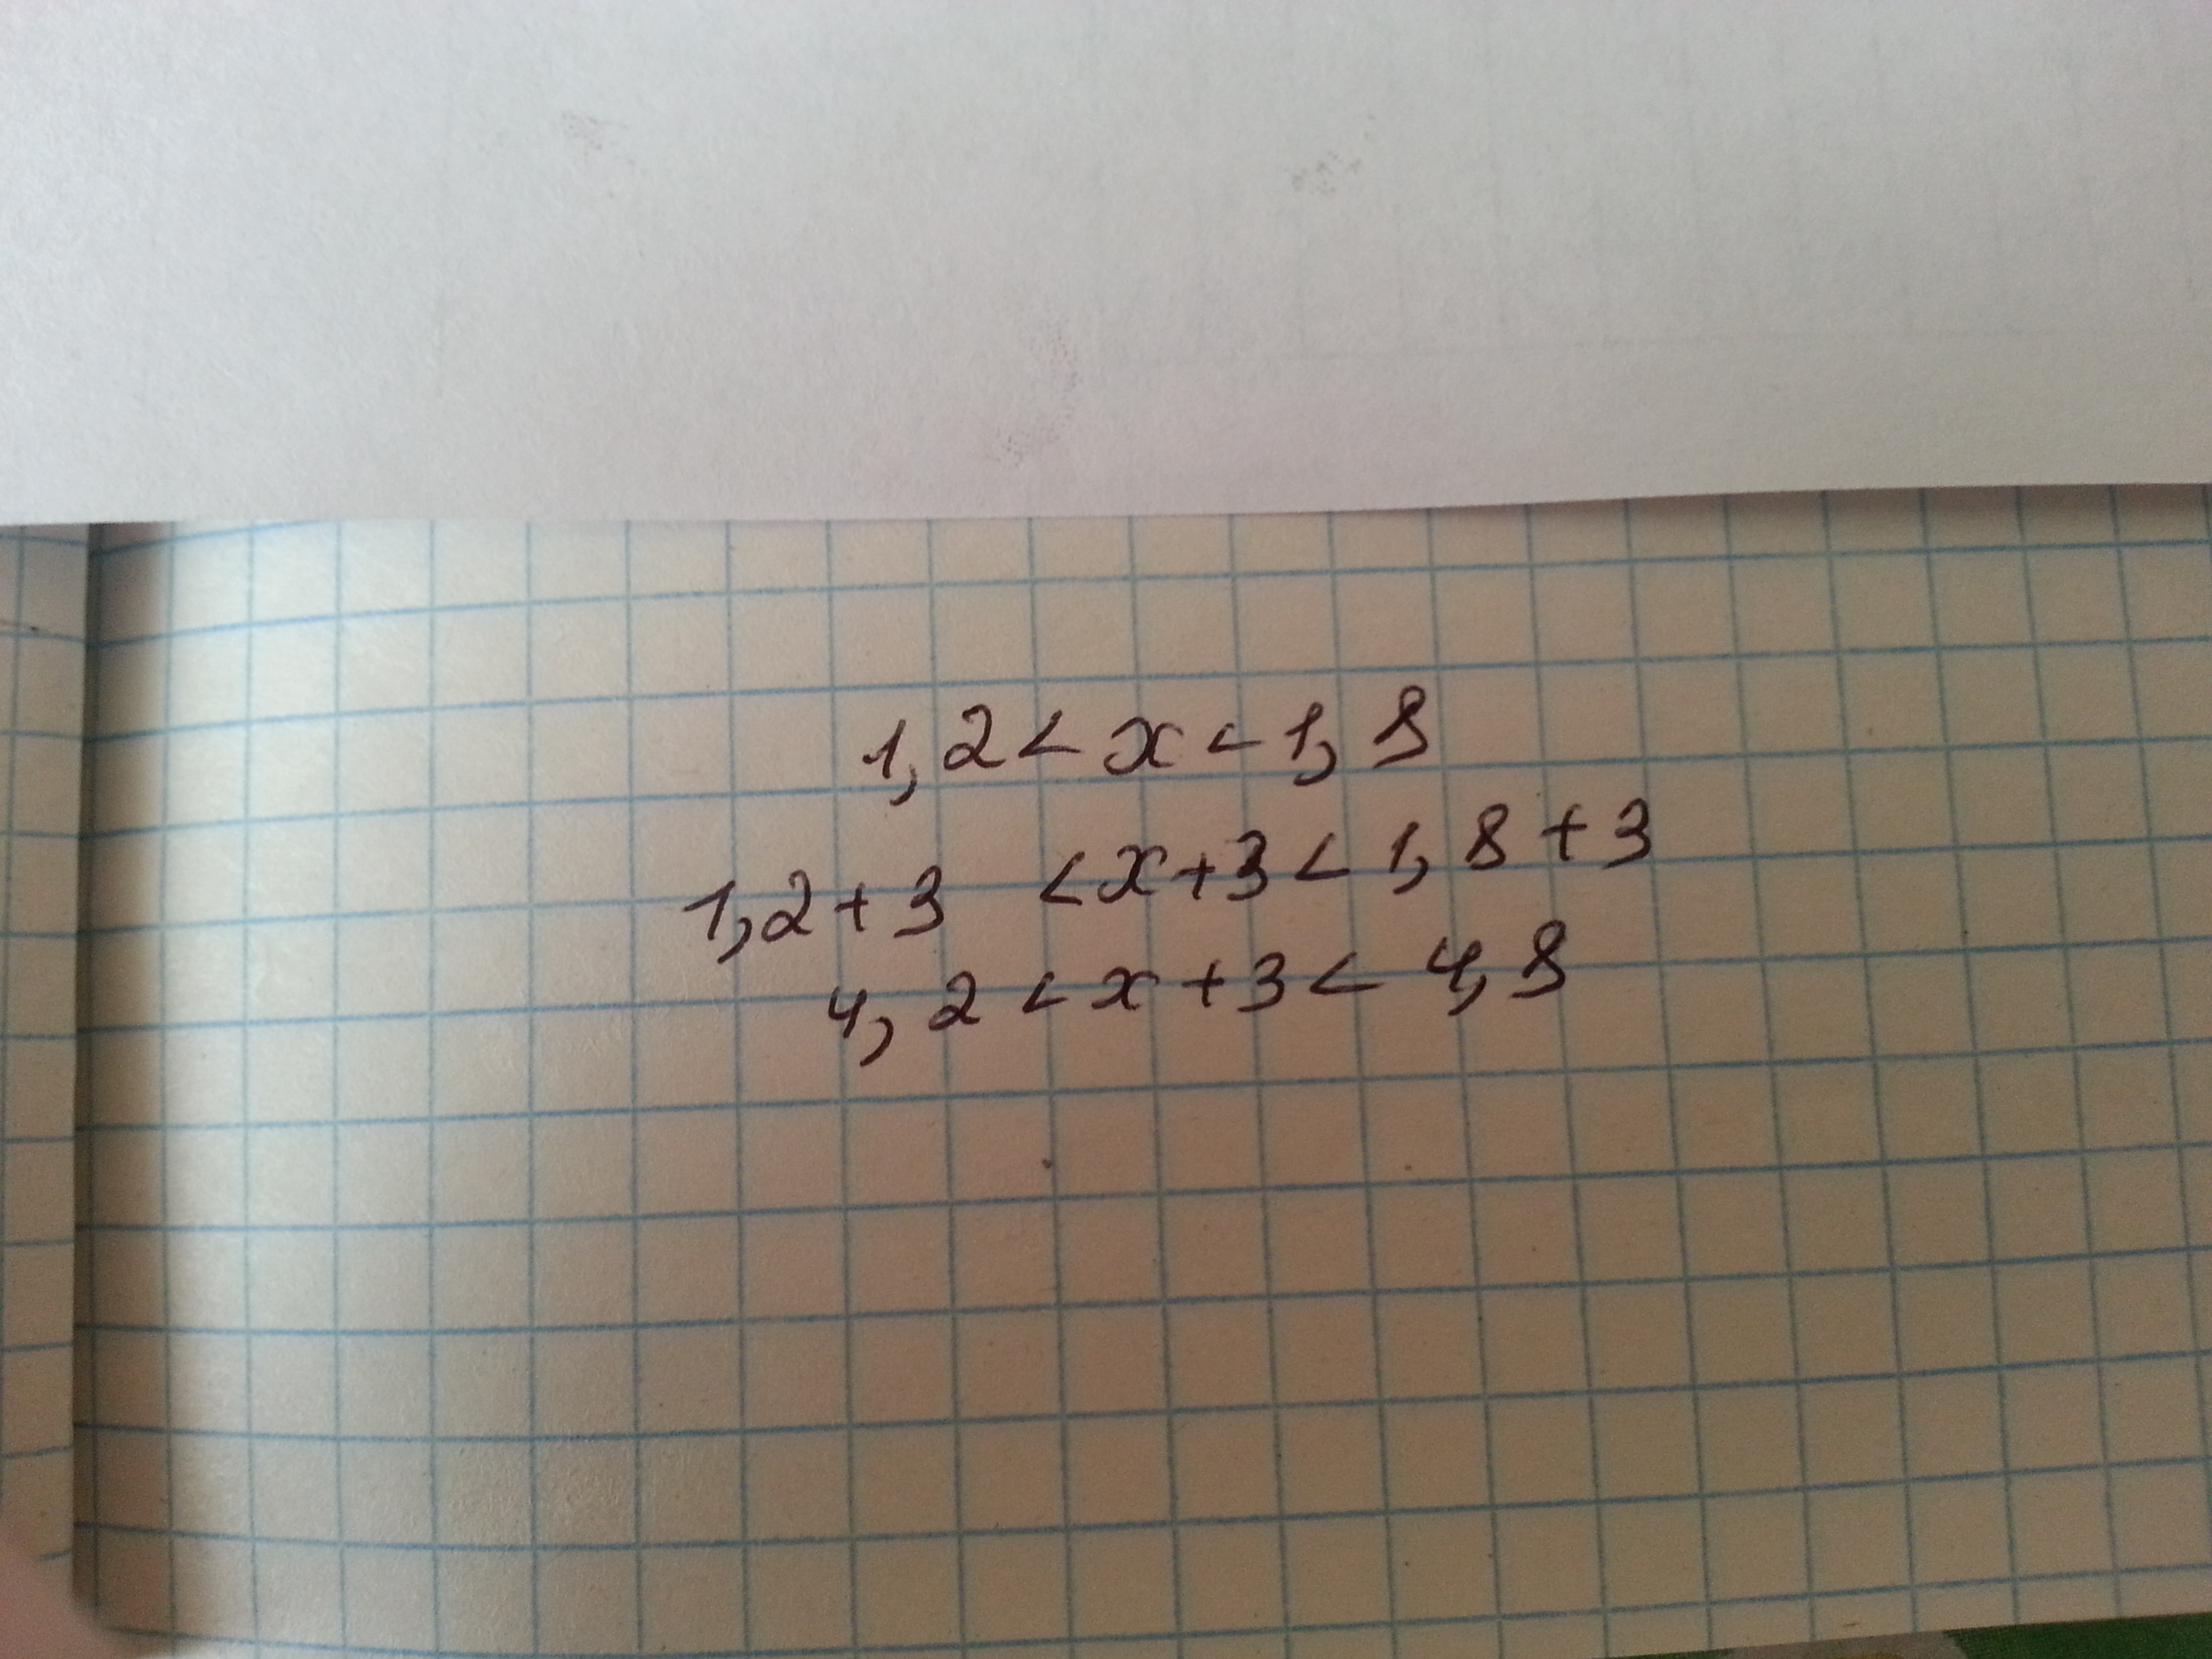 1,2 < x < 1,8
1,2 + 3 < x + 3 < 1,8 + 3
4,2 < x + 3 < 4,8